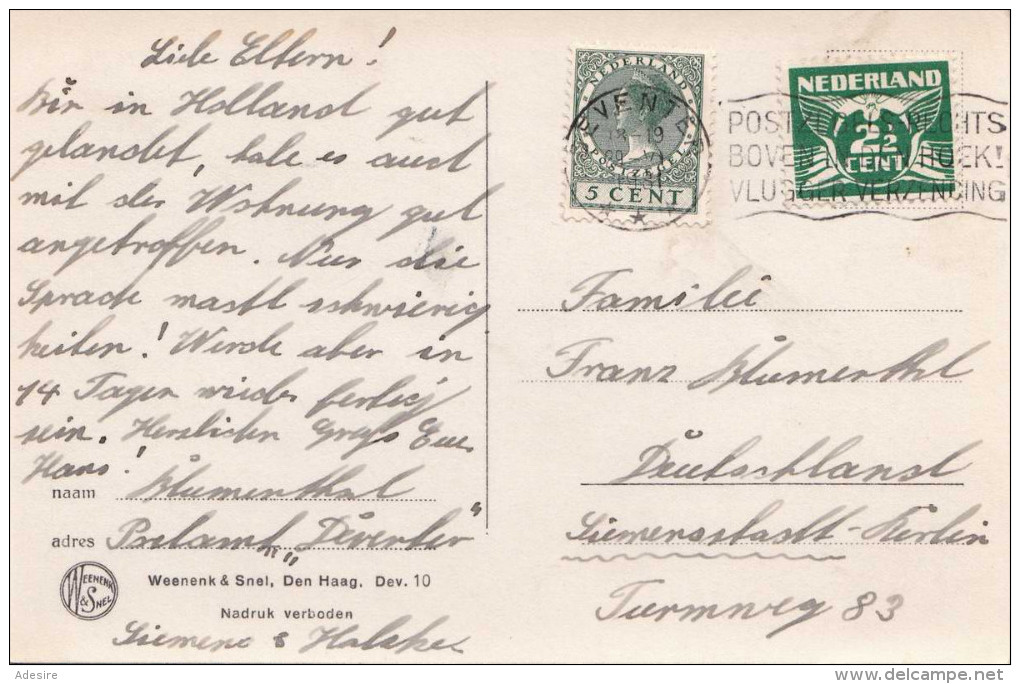 Liebe Eltern!
Bin in Holland gut
gelandet, habe es auch
mit der Wohnung gut
angetroffen. Nur die
Sprache macht schwierig
keiten! Werde aber in
14 Tagen wieder fertig
sein. Herzlichen Gruß Euer
Hans!
naam Blumenthal
adres Postamt "Deventer"
WEENENK & SNEL
Weenenk & Snel, Den Haag, Dev. 10
Nadruk verboden
Siemens & Halske
NEDERLAND
POSTZEGEL
5 CENT
DEVENTER
NEDERLAND
2½
CENT
POSTZEGELS RECHTS
BOVEN HOEK!
VLUGGER VERZENDING
Familie
Franz Blumenthal
Deutschland
Siemensstadt-Berlin
Turmweg 83
Adesire
delcampe.net